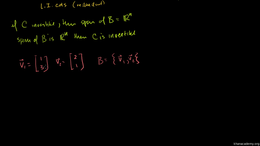 if C invertible, then span of B = ℝⁿ
span of B is ℝⁿ then C is invertible
v⃗₁ = [1 2] v⃗₂ = [2 1] B = {v⃗₁, v⃗₂}
khanacademy.org